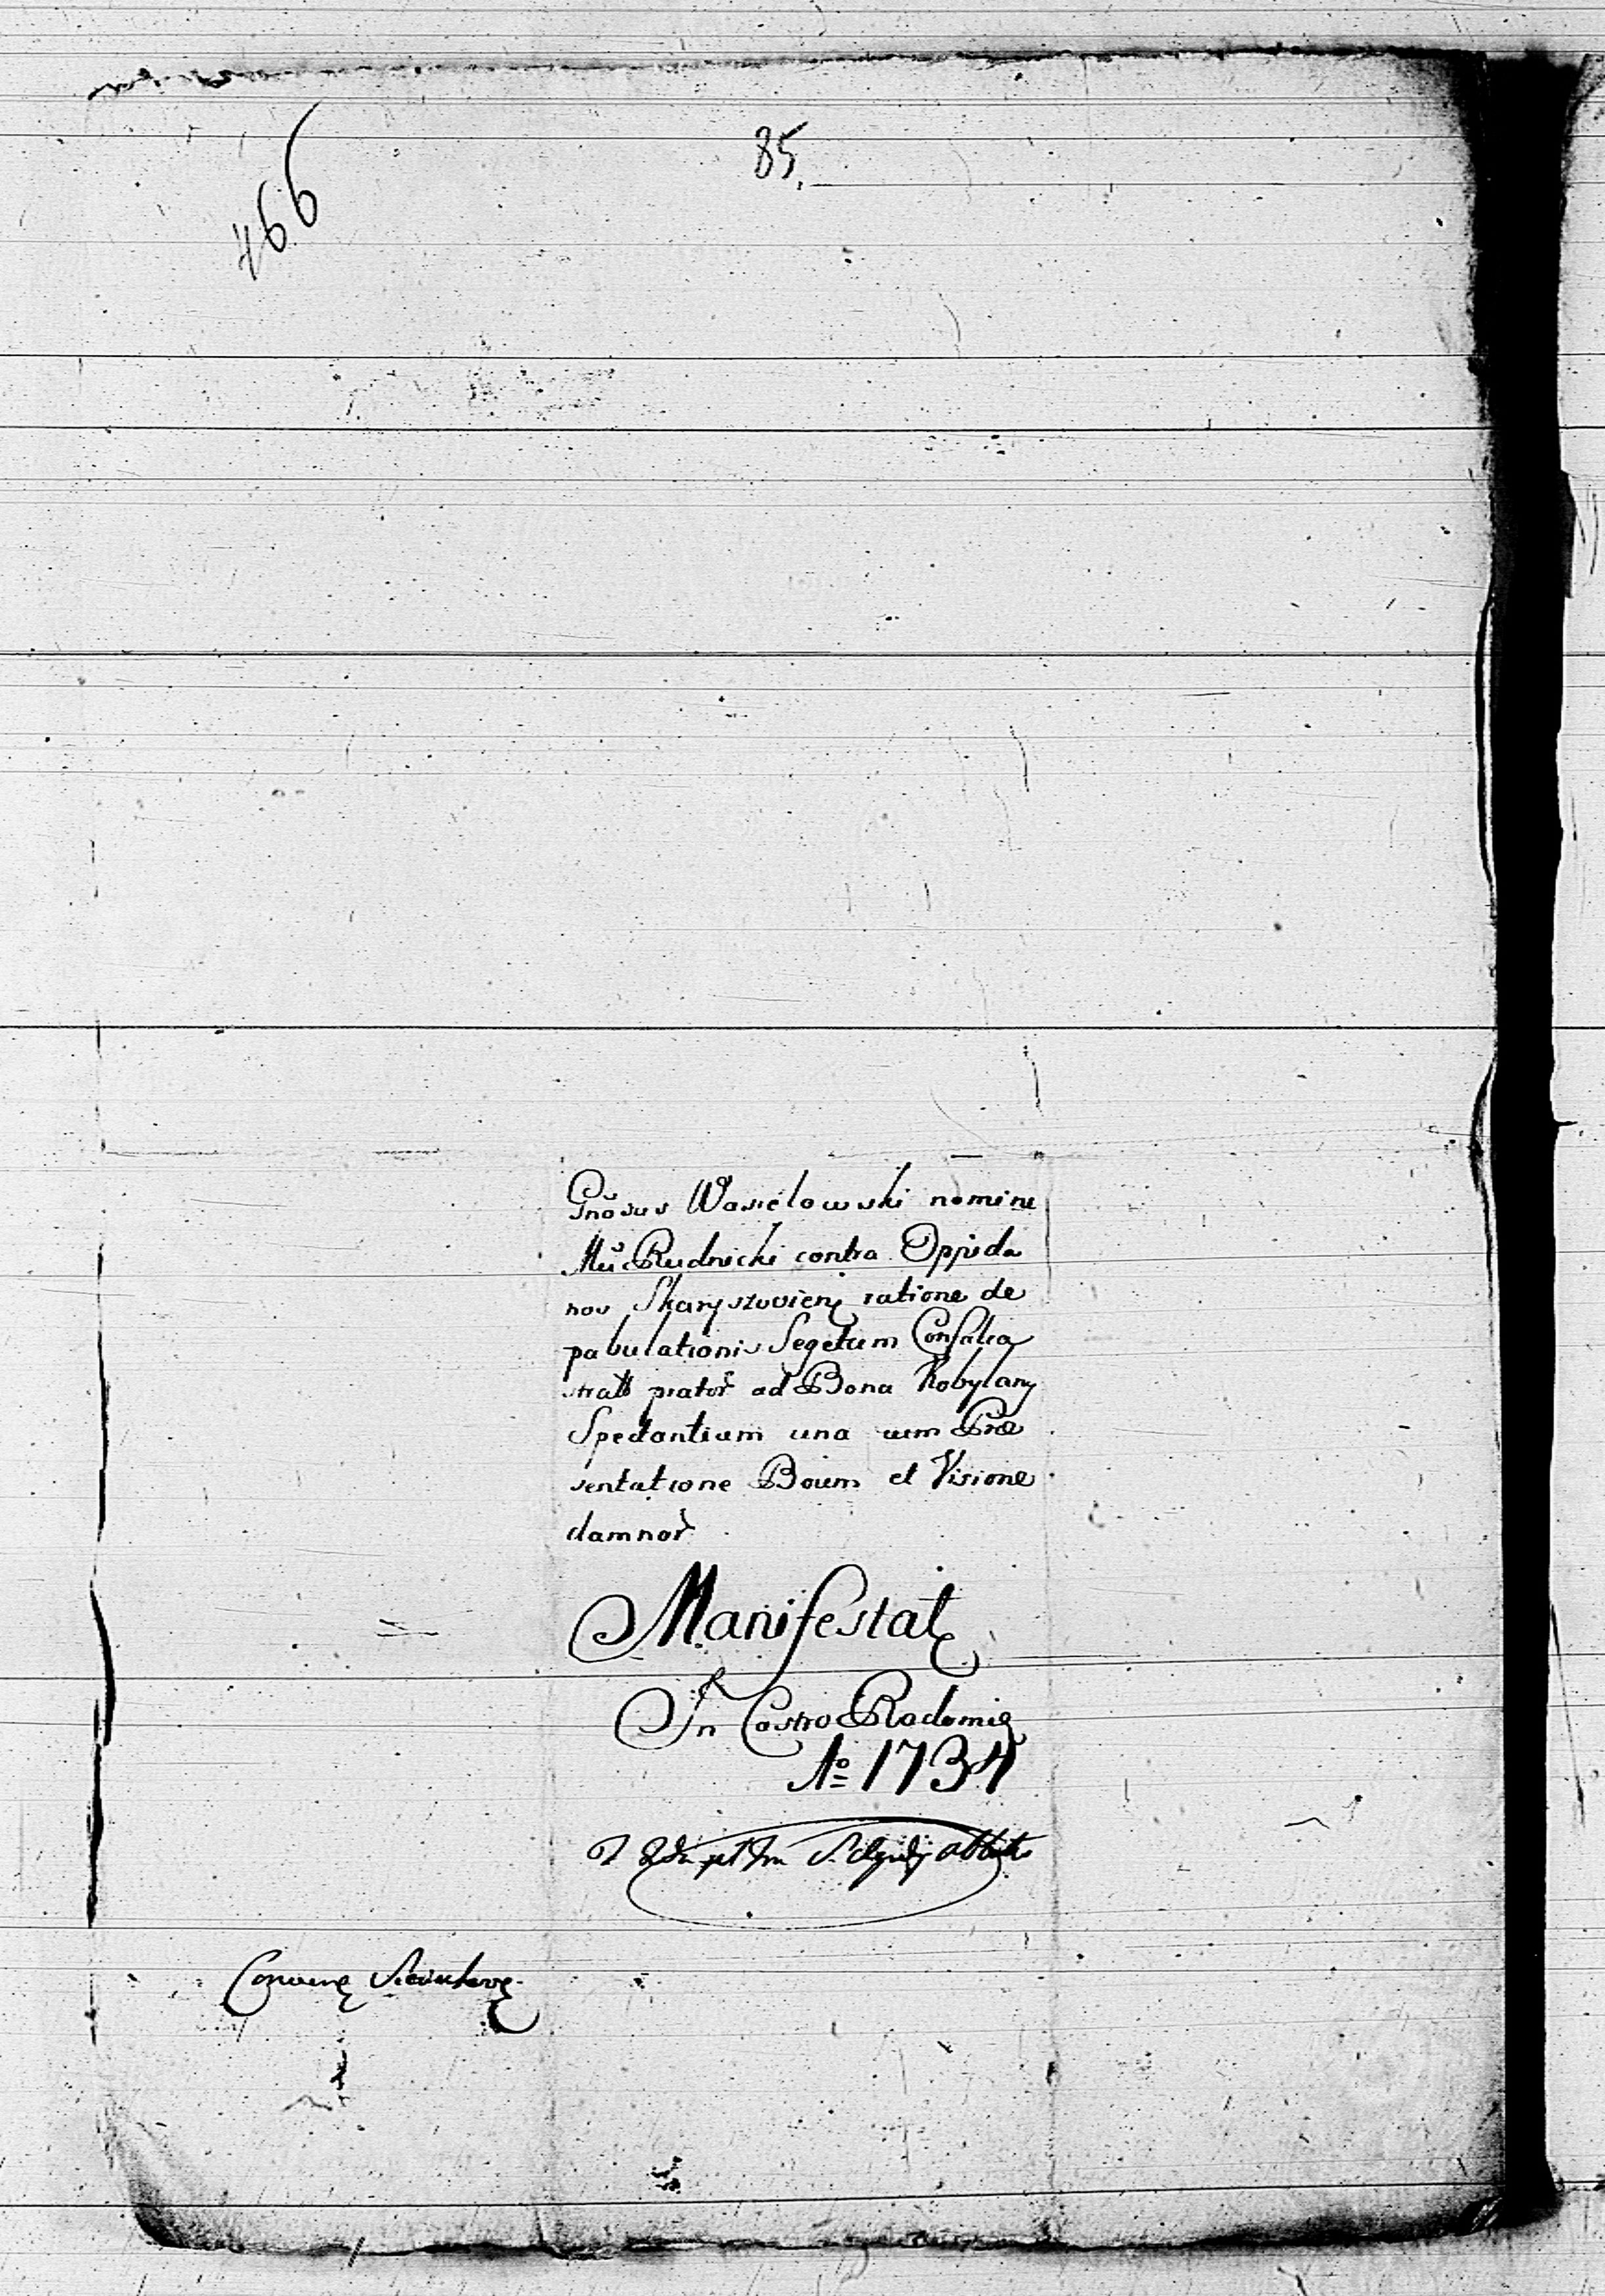 85.
466
Gnosus Wasielowski nomine
Mci Rudnicki contra Oppida
nos Skaryszovien ratione de
pabulationis Segetum Confalca
prator ad Bona Kobylany
Spectantium una cum Præ
sentatione Boum et Visione
damnor
Manifestat
In Castro Radomie
Ao 1734
Abbatis